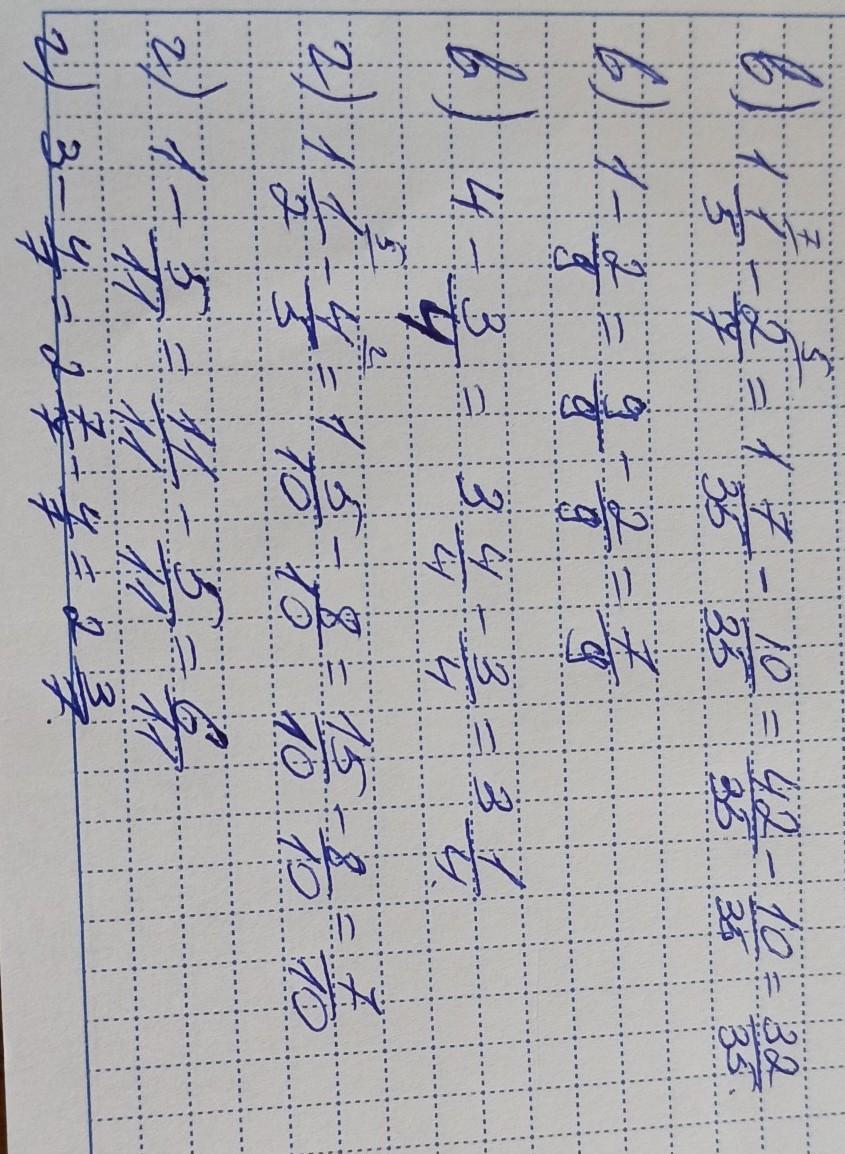 в) 1 1/5 - 2/7 = 1 7/35 - 10/35 = 42/35 - 10/35 = 32/35.
в) 1 - 2/9 = 9/9 - 2/9 = 7/9
в) 4 - 3/4 = 3 4/4 - 3/4 = 3 1/4.
г) 1 1/2 - 4/5 = 1 5/10 - 8/10 = 15/10 - 8/10 = 7/10
г) 1 - 5/11 = 11/11 - 5/11 = 6/11
г) 3 - 4/7 = 2 7/7 - 4/7 = 2 3/7.